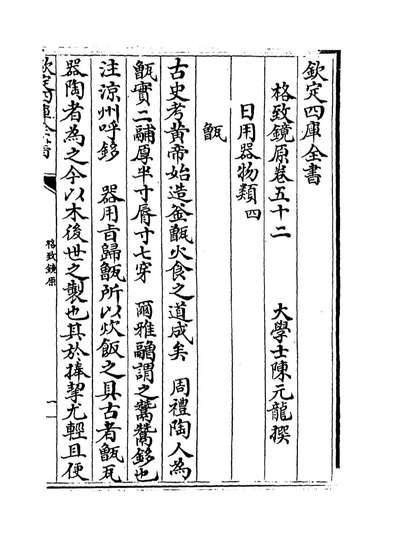 欽定四庫全書
格致鏡原卷五十二
大學士陳元龍撰
日用器物類四
甑
古史考黃帝始造釜甑火食之道成矣 周禮陶人為
甑實二鬴厚半寸脣寸七穿 爾雅鬵謂之鷘鷘鉹也
注涼州呼鉹 器用㫖歸甑所以炊飯之具古者甑瓦
器陶者為之今以木後世之製也其於捧挈尤輕且便
欽定四庫全書
格致鏡原
一